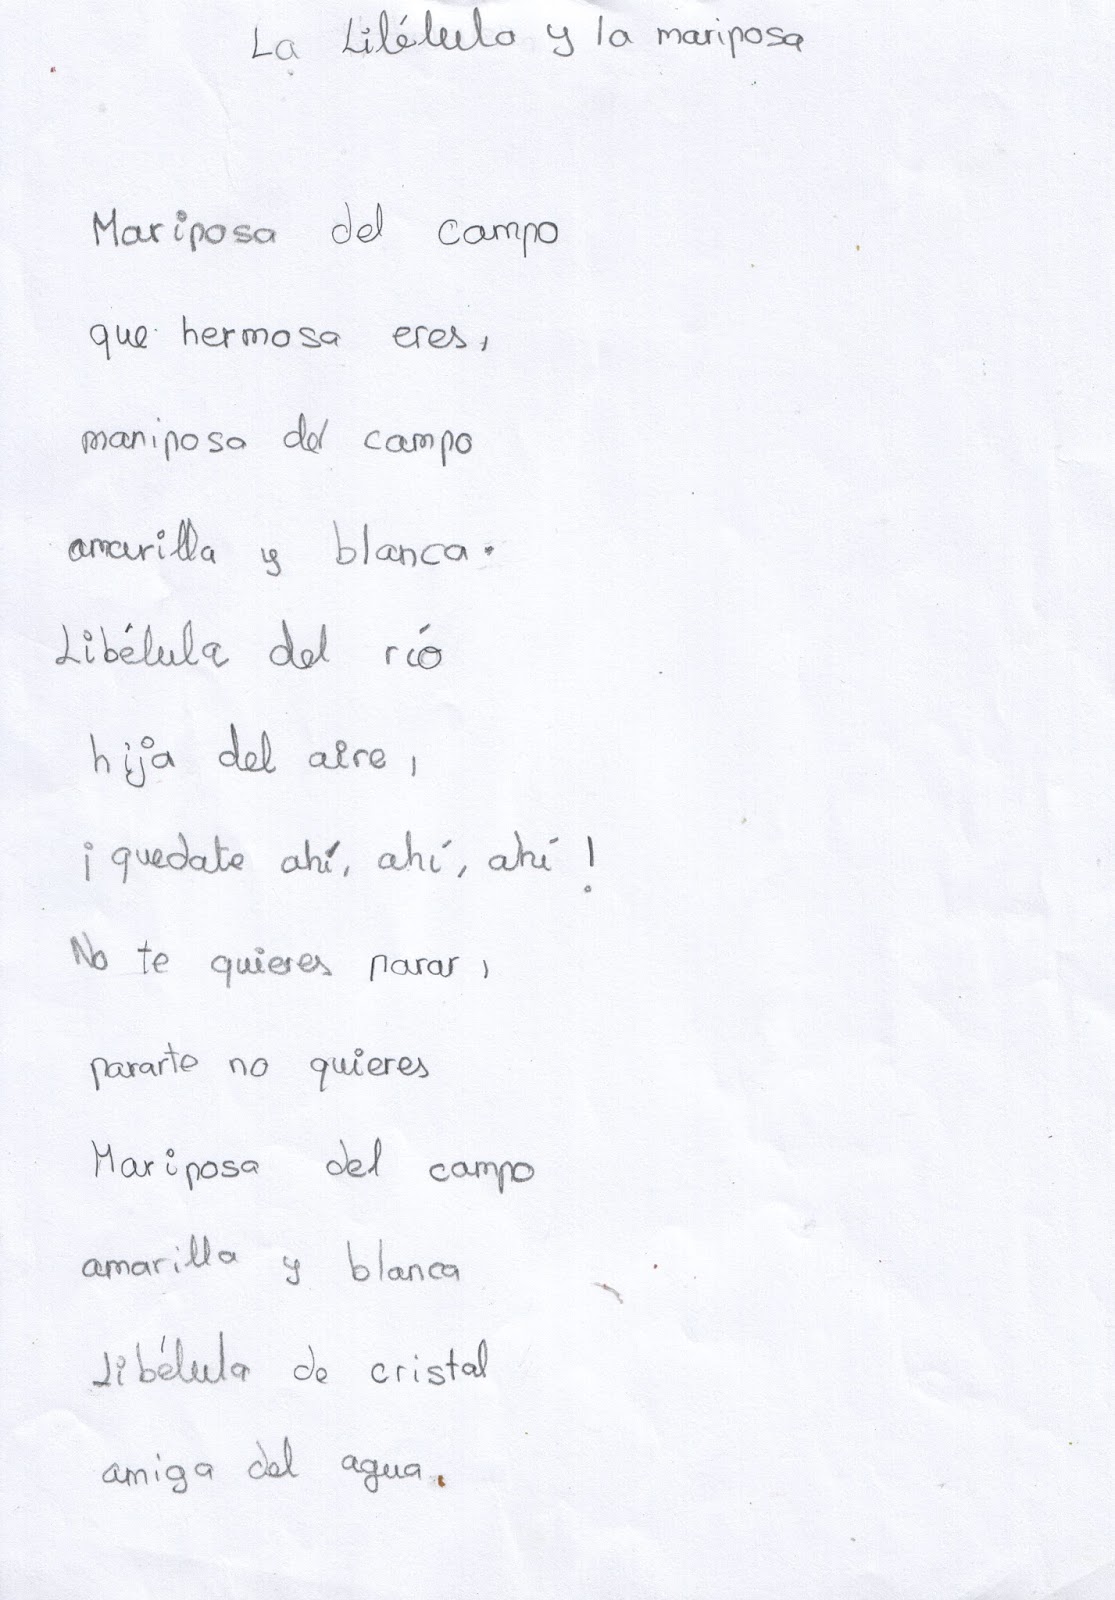 La Libélula y la mariposa
Mariposa del campo
que hermosa eres,
mariposa del campo
amarilla y blanca.
Libélula del río
hija del aire,
¡quedate ahí, ahí, ahí!
No te quieres parar,
pararte no quieres
Mariposa del campo
amarilla y blanca
Libélula de cristal
amiga del agua.